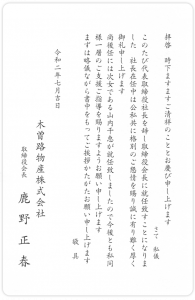 拝啓　時下ますますご清祥のこととお慶び申し上げます
さて　私儀
このたび代表取締役社長を辞し取締役会長に就任致すことになりま
した　社長在任中は公私共に格別のご懇情を賜り誠に有り難く厚く
御礼申し上げます
尚後任には次女である山内千恵が就任致しましたので今後とも私同
様一層のご支援ご指導を賜りますようお願い申し上げます
まずは略儀ながら書中をもってご挨拶かたがたお願い申し上げます
敬具
令和二年七月吉日
木曽路物産株式会社
取締役会長　鹿野正春